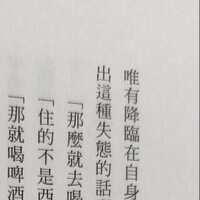 唯有降臨在自身
出這種失態的話
「那麼就去喝
「住的不是西
「那就喝啤酒